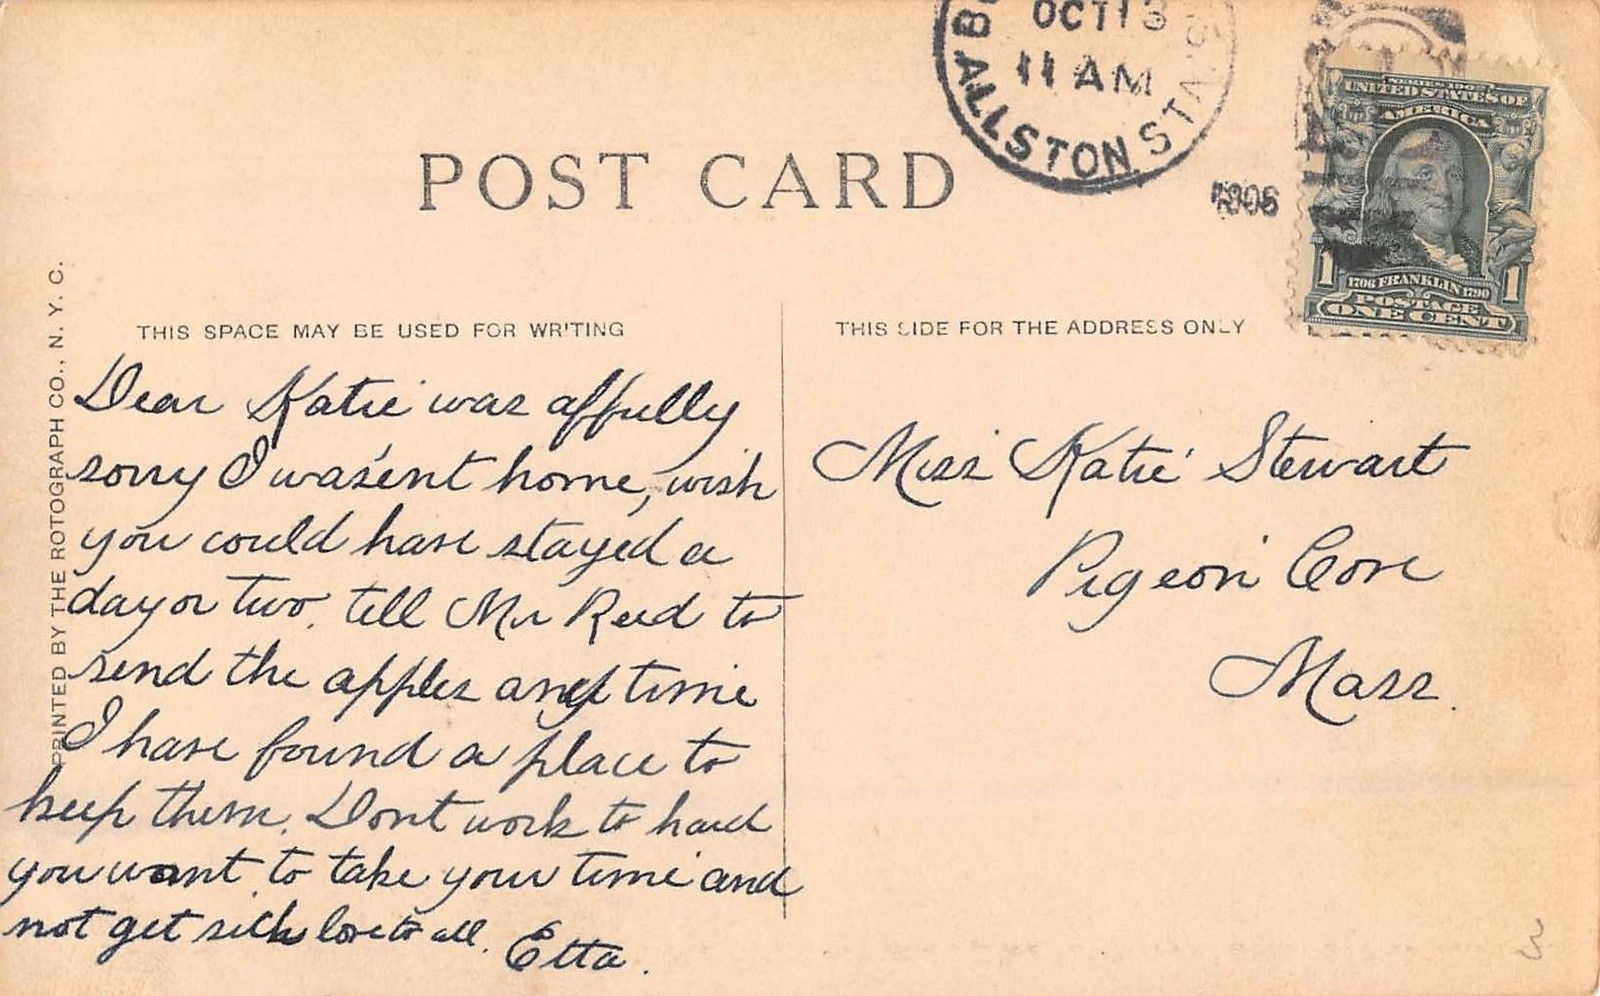 OCT 13
11 AM
ALLSTON STA.
1906
SERIES 1902
UNITED STATES OF
AMERICA
1706 FRANKLIN 1790
POSTAGE
1 ONE CENT 1
POST CARD
PRINTED BY THE ROTOGRAPH CO., N. Y. C.
THIS SPACE MAY BE USED FOR WRITING
Dear Katie was affully
sorry I was'ent home, wish
you could have stayed a
day or two. tell Mr Reed to
send the apples any time
I have found a place to
keep them. Dont work to hard
you want to take your time and
not get sick love to all. Etta.
THIS SIDE FOR THE ADDRESS ONLY
Miss Katie Stewart
Pigeon Cove
Mass.
3